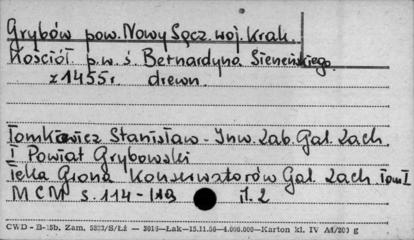 Grybów pow. Nowy Sącz. woj. Krak.
Kościół p.w. ś. Bernardyna Sieneńskiego
z 1455 r. drewn.
Tomkowicz Stanisław - Inw. Zab. Gal. Zach.
I Powiat Grybowski
Teka Grona Konserwatorów Gal. Zach. Tom I
MCM s. 114-119 il. 2
CWD - B-15b. Zam. Łak—15.11.56—4.000.000—Karton kl. IV A4/200 g